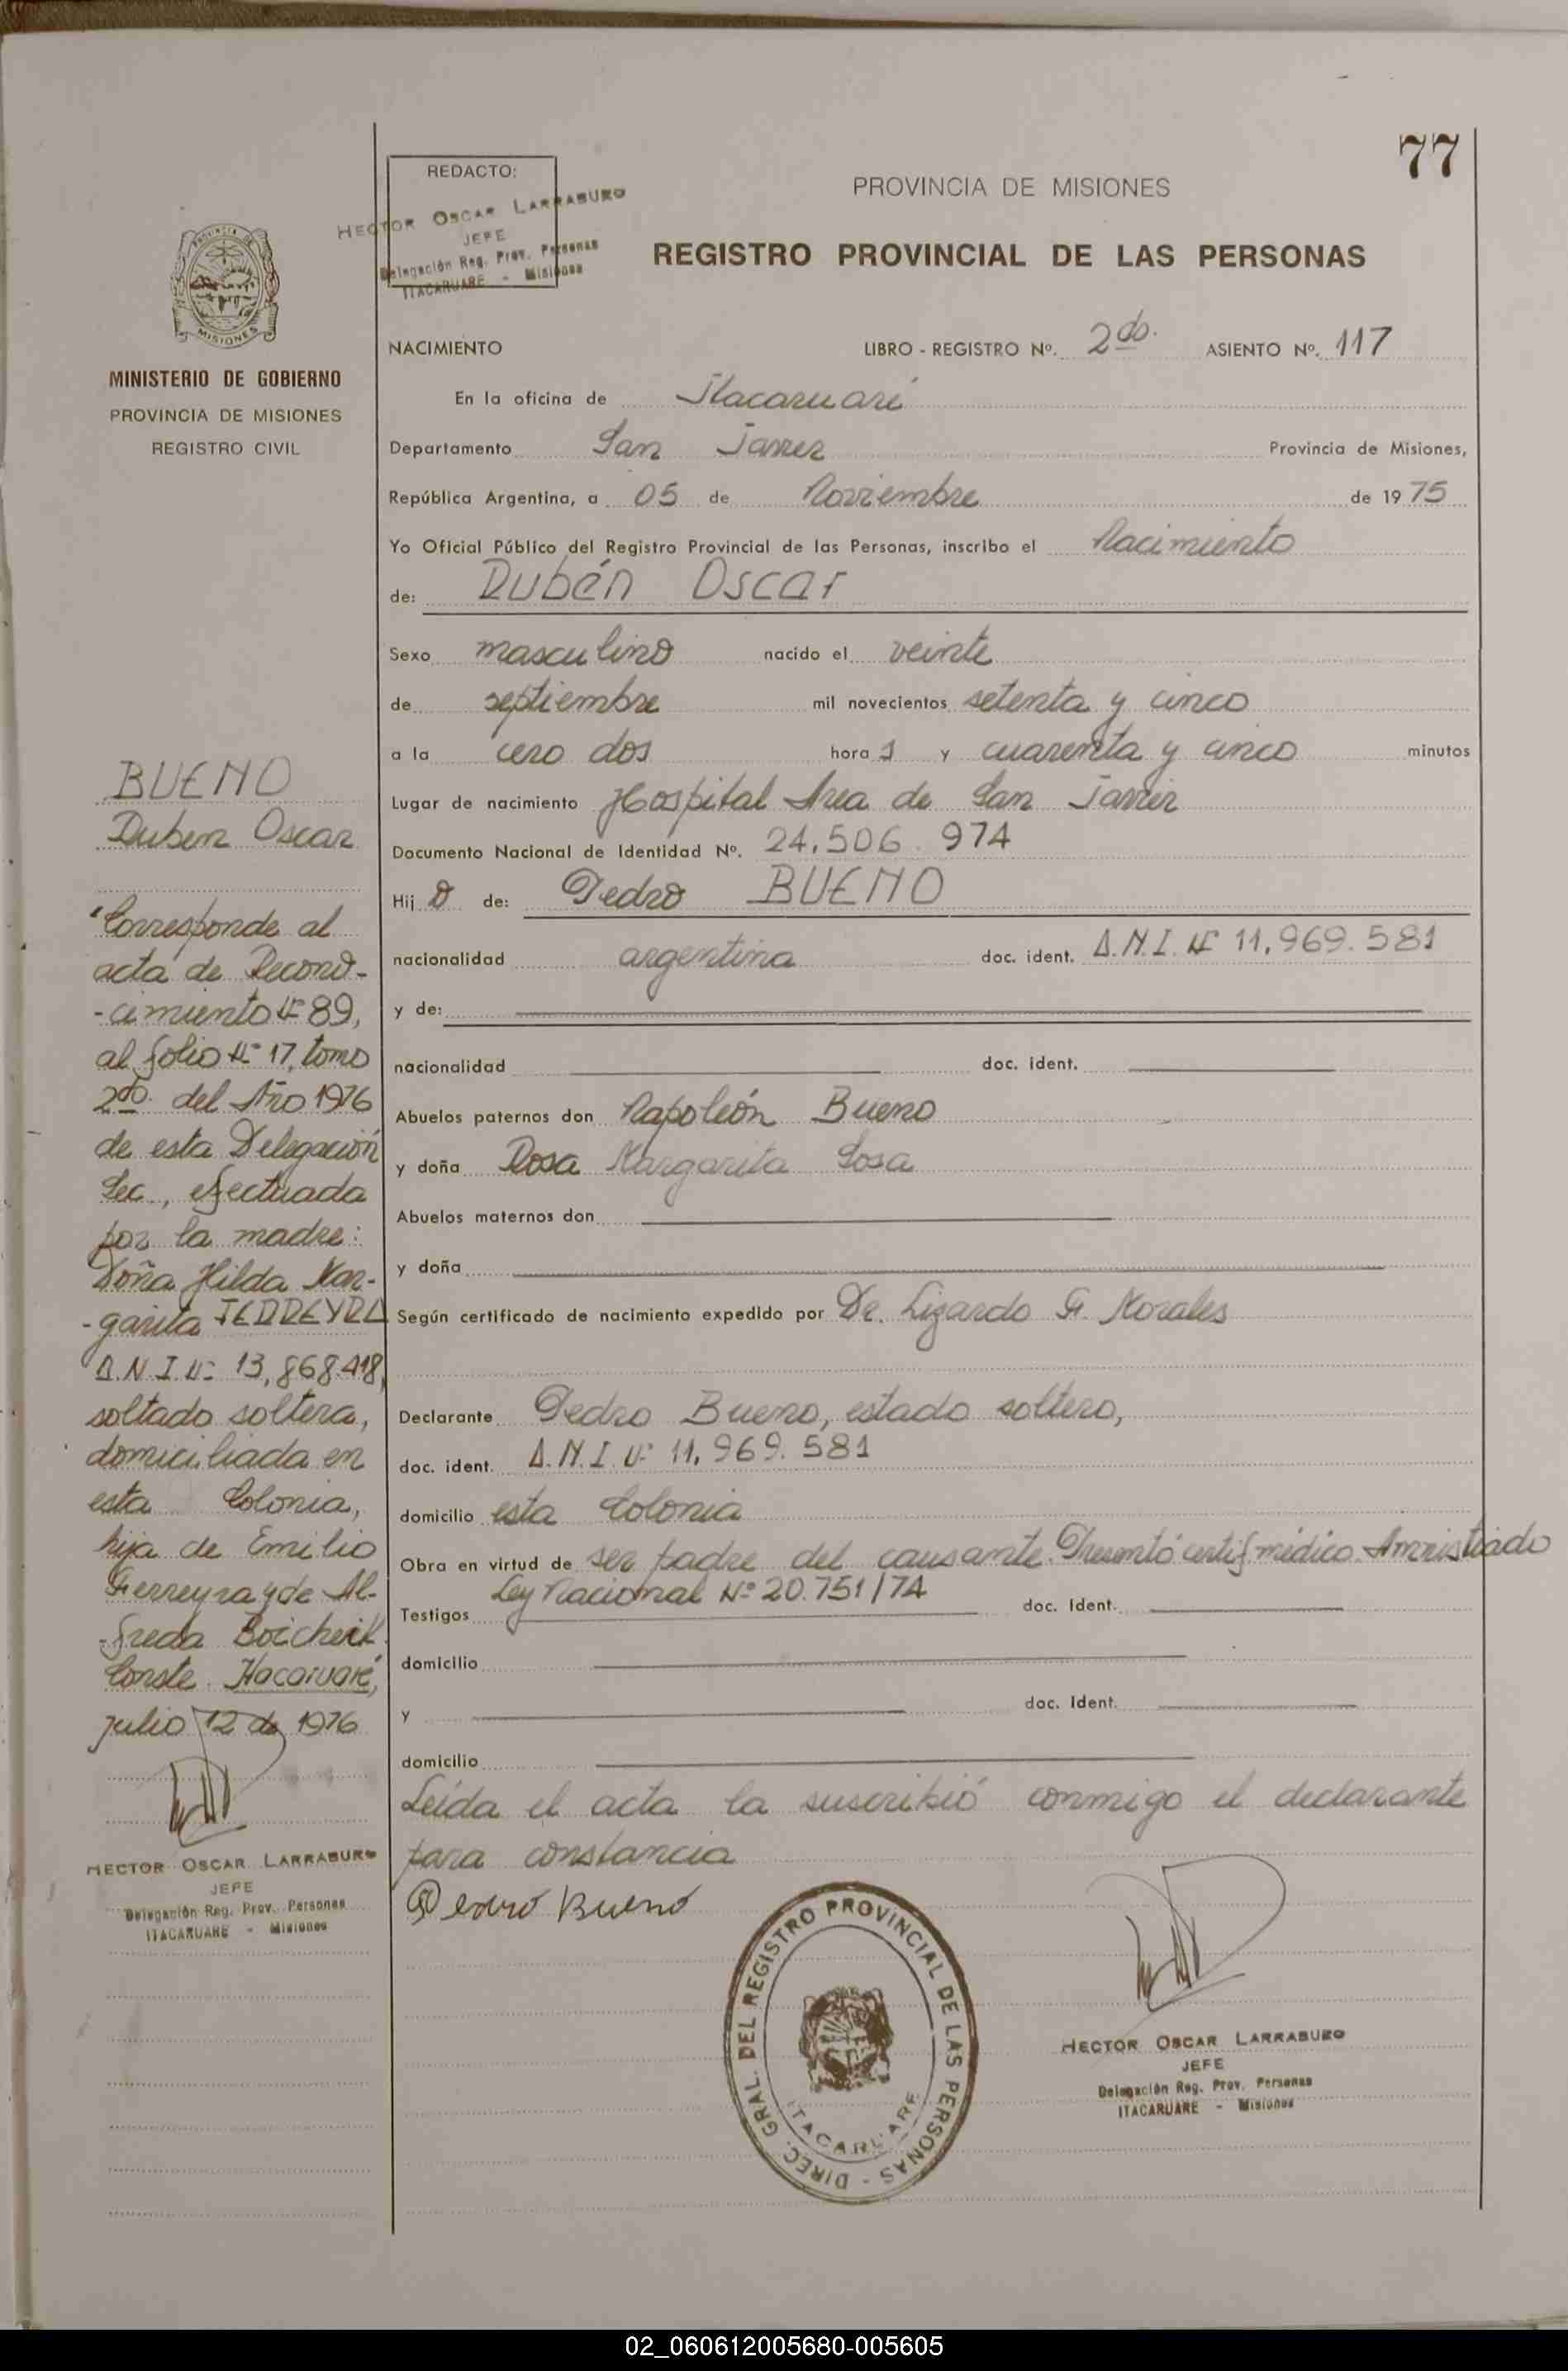 77
REDACTO:
HECTOR OSCAR LARRABURO
JEFE
Delegación Reg. Prov. Personas
ITACARUARE - Misiones
PROVINCIA DE MISIONES
REGISTRO PROVINCIAL DE LAS PERSONAS
PROVINCIA DE
MISIONES
MINISTERIO DE GOBIERNO
PROVINCIA DE MISIONES
REGISTRO CIVIL
NACIMIENTO LIBRO - REGISTRO Nº. 2do. ASIENTO Nº. 117
En la oficina de Itacaruaré
Departamento San Javier Provincia de Misiones,
República Argentina, a 05 de Noviembre de 1975
Yo Oficial Público del Registro Provincial de las Personas, inscribo el Nacimiento
de: Rubén Oscar
Sexo masculino nacido el veinte
de septiembre mil novecientos setenta y cinco
a la cero dos hora s y cuarenta y cinco minutos
Lugar de nacimiento Hospital Area de San Javier
Documento Nacional de Identidad Nº. 24.506.974
Hij o de: Pedro BUENO
nacionalidad argentina doc. ident. D.N.I. Nº 11.969.581
y de:
nacionalidad doc. ident.
Abuelos paternos don Napoleón Bueno
y doña Rosa Margarita Sosa
Abuelos maternos don
y doña
Según certificado de nacimiento expedido por Dr. Lizardo F. Morales
Declarante Pedro Bueno, estado soltero,
doc. ident. D.N.I. Nº 11.969.581
domicilio esta Colonia
Obra en virtud de ser padre del causante. Presentó certif médico. Amnistiado
Ley Nacional Nº 20.751/74
Testigos doc. Ident.
domicilio
y doc. Ident.
domicilio
Leída el acta la suscribió conmigo el declarante
para constancia
Pedro Bueno
BUENO
Ruben Oscar
"Corresponde al
acta de Recono-
-cimiento Nº 89,
al folio Nº 17, tomo
2do. del Año 1976
de esta Delegación
Sec., efectuada
por la madre:
Doña Hilda Mar-
-garita FERREYRA
D.N.I. Nº 13,868.418,
soltado soltera,
domiciliada en
esta Colonia,
hija de Emilio
Ferreyra y de Al-
-freda
Conste. Itacaruaré,
julio 12 de 1976
HECTOR OSCAR LARRABURO
JEFE
Delegación Reg. Prov. Personas
ITACARUARE - Misiones
DIREC. GRAL. DEL REGISTRO PROVINCIAL DE LAS PERSONAS -
ITACARUARE
HECTOR OSCAR LARRABURO
JEFE
Delegación Reg. Prov. Personas
ITACARUARE - Misiones
02_060612005680-005605